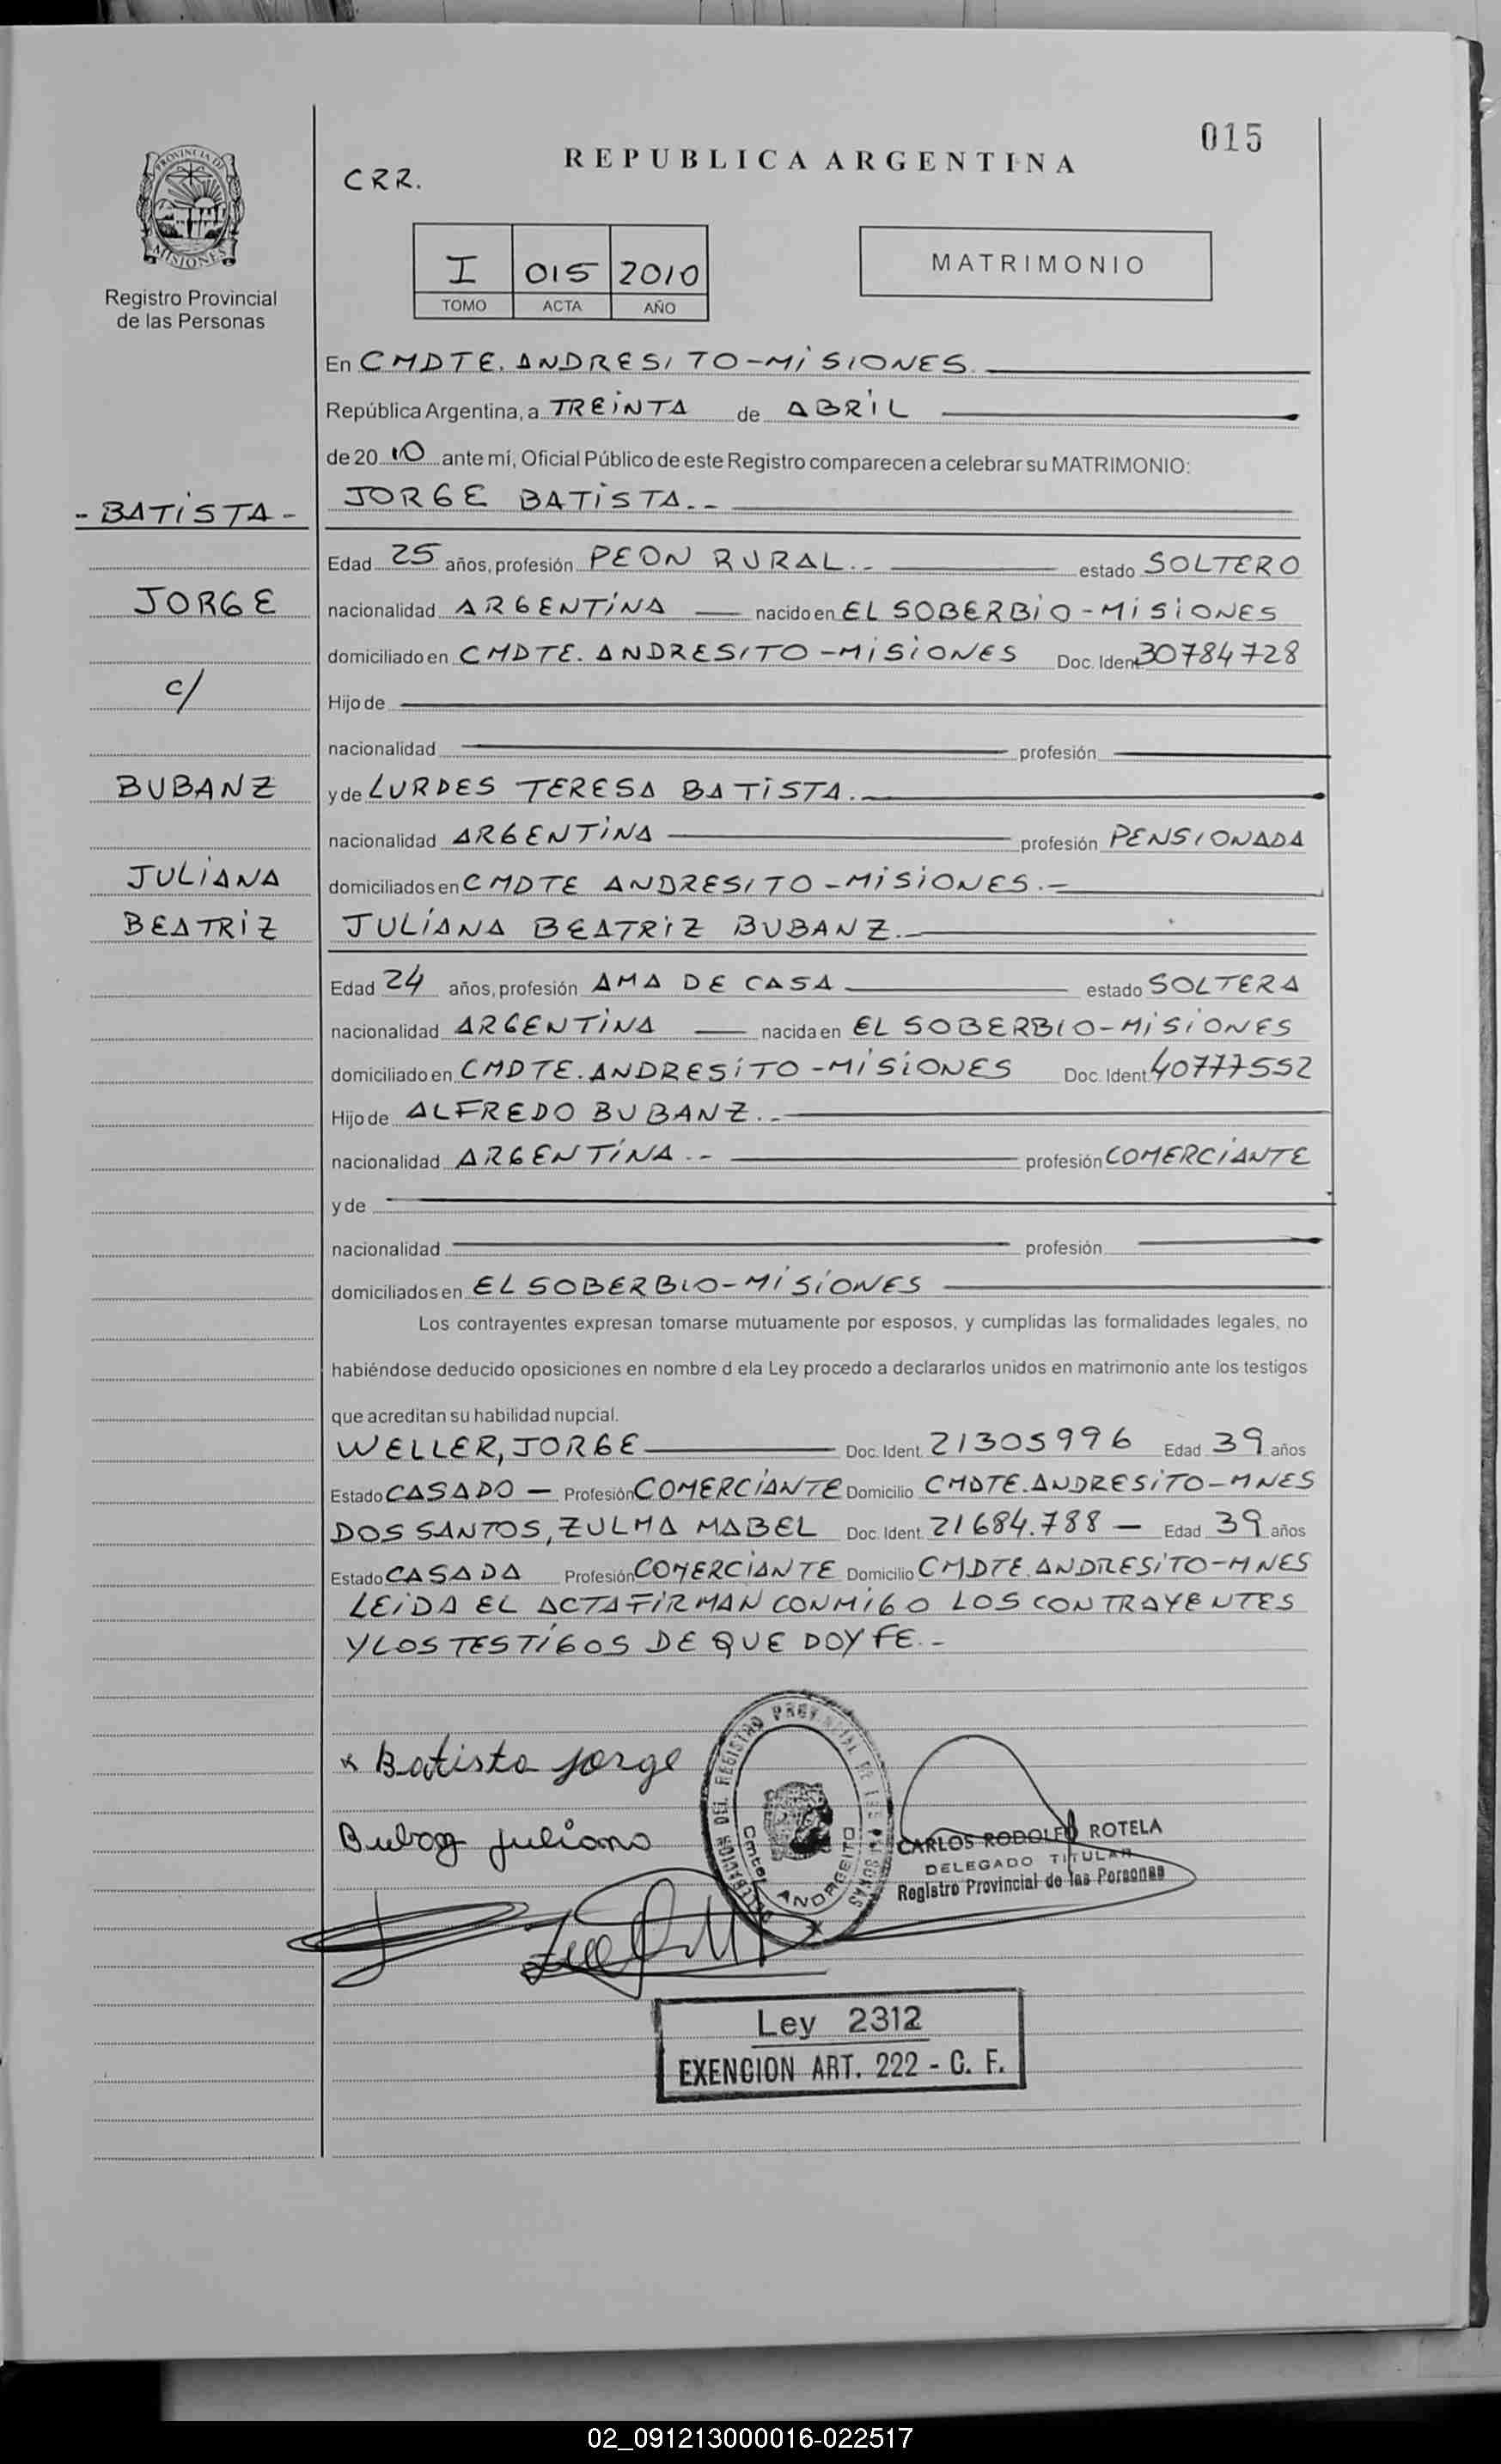 015
REPUBLICA ARGENTINA
CRR.
PROVINCIA DE
MISIONES
Registro Provincial
de las Personas
I 015 2010
TOMO ACTA AÑO
MATRIMONIO
En CMDTE. ANDRESITO-MISIONES.
República Argentina, a TREINTA de ABRIL
de 20 10 ante mí, Oficial Público de este Registro comparecen a celebrar su MATRIMONIO:
- BATISTA -
JORGE BATISTA.-
Edad 25 años, profesión PEON RURAL.- estado SOLTERO
JORGE
nacionalidad ARGENTINA nacido en EL SOBERBIO - MISIONES
domiciliado en CMDTE. ANDRESITO - MISIONES Doc. Ident 30784728
c/
Hijo de
nacionalidad profesión
BUBANZ
y de LURDES TERESA BATISTA.
nacionalidad ARGENTINA profesión PENSIONADA
JULIANA
domiciliados en CMDTE ANDRESITO - MISIONES.-
BEATRIZ
JULIANA BEATRIZ BUBANZ.-
Edad 24 años, profesión AMA DE CASA estado SOLTERA
nacionalidad ARGENTINA nacida en EL SOBERBIO - MISIONES
domiciliado en CMDTE. ANDRESITO - MISIONES Doc. Ident. 40777552
Hijo de ALFREDO BUBANZ.-
nacionalidad ARGENTINA.- profesión COMERCIANTE
y de
nacionalidad profesión
domiciliados en EL SOBERBIO - MISIONES
Los contrayentes expresan tomarse mutuamente por esposos, y cumplidas las formalidades legales, no
habiéndose deducido oposiciones en nombre d ela Ley procedo a declararlos unidos en matrimonio ante los testigos
que acreditan su habilidad nupcial.
WELLER, JORGE Doc. Ident. 21305996 Edad 39 años
Estado CASADO - Profesión COMERCIANTE Domicilio CMDTE. ANDRESITO-MNES
DOS SANTOS, ZULMA MABEL Doc. Ident. 21684.788 - Edad 39 años
Estado CASADA Profesión COMERCIANTE Domicilio CMDTE. ANDRESITO-MNES
LEIDA EL ACTA FIRMAN CONMIGO LOS CONTRAYENTES
Y LOS TESTIGOS DE QUE DOY FE.-
x Batista Jorge
juliana
CARLOS RODOLFO ROTELA
DELEGADO TITULAR
Registro Provincial de las Personas
Ley 2312
EXENCION ART. 222 - C. F.
02_091213000016-022517